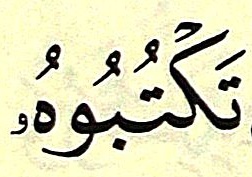 تَكۡتُبُوهُۥ